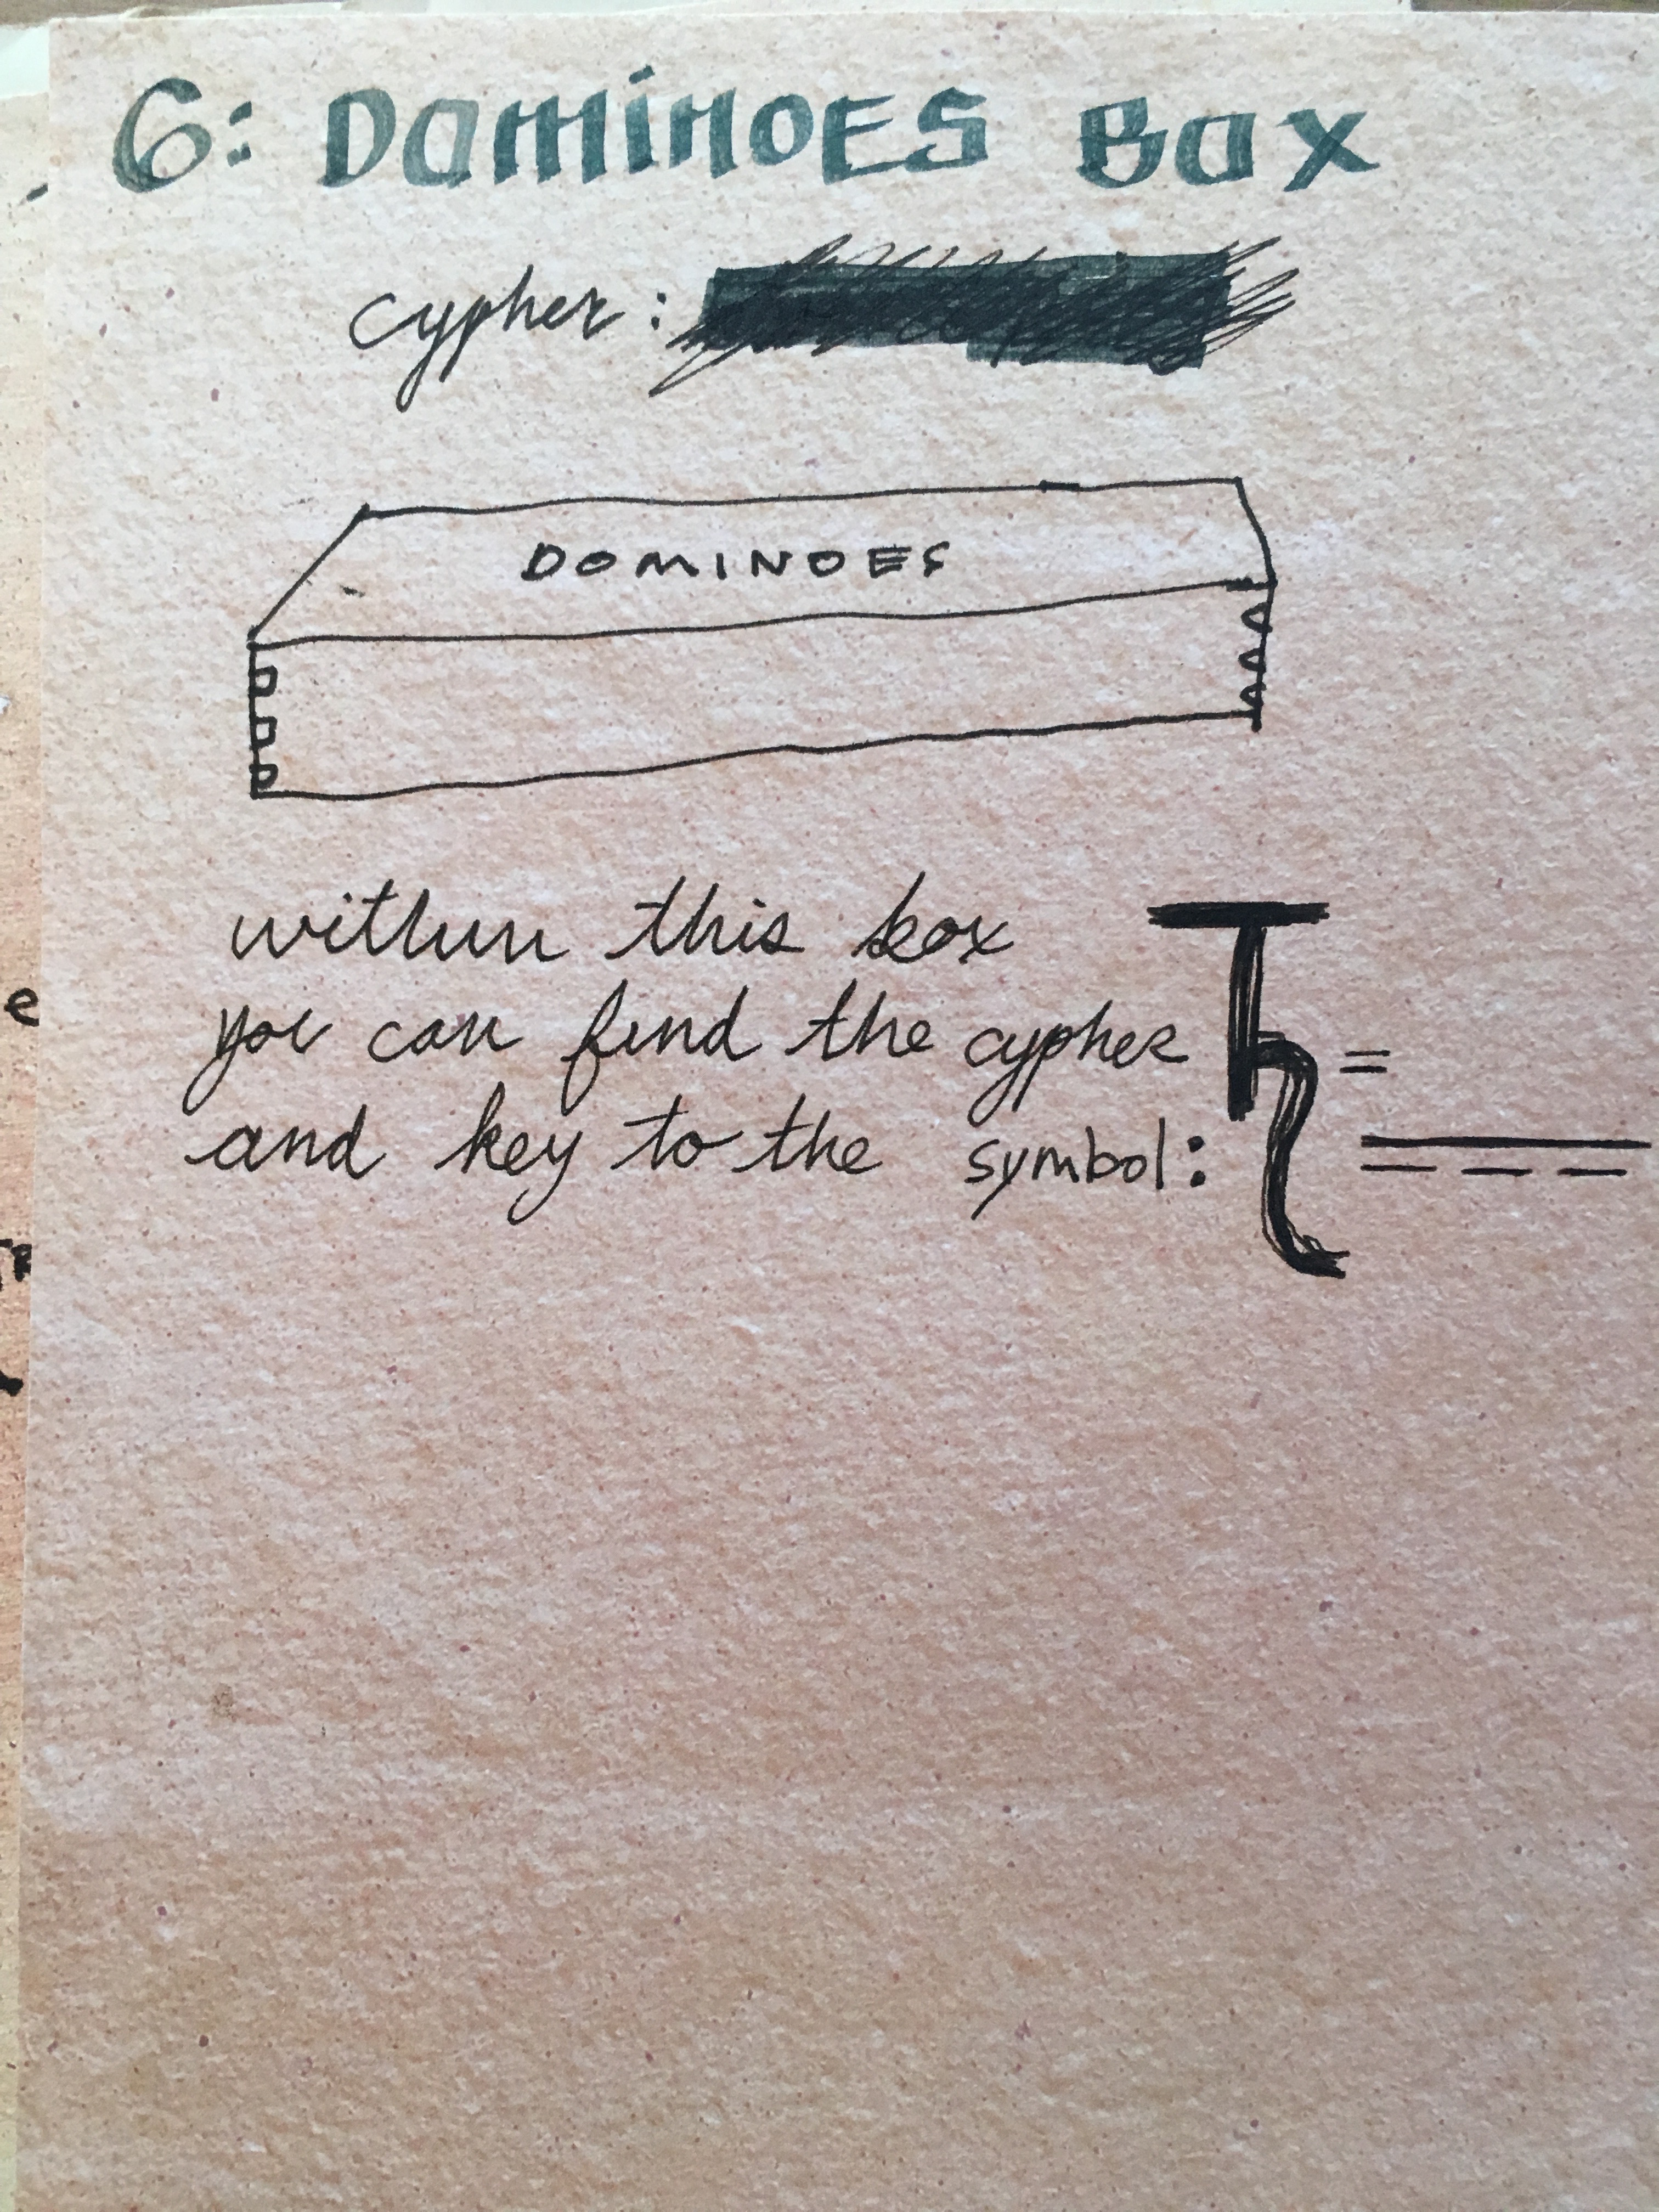 6: Dominoes Box
cypher:
DOMINOES
within this box
you can find the cypher
and key to the symbol:
=
e